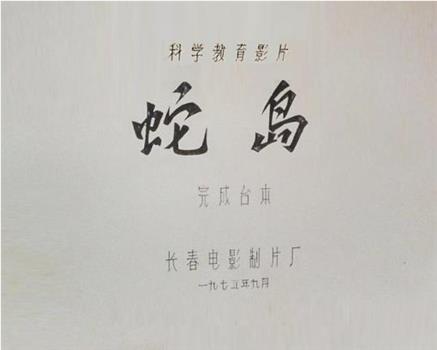 科学教育影片
蛇岛
完成台本
长春电影制片厂
一九七五年九月